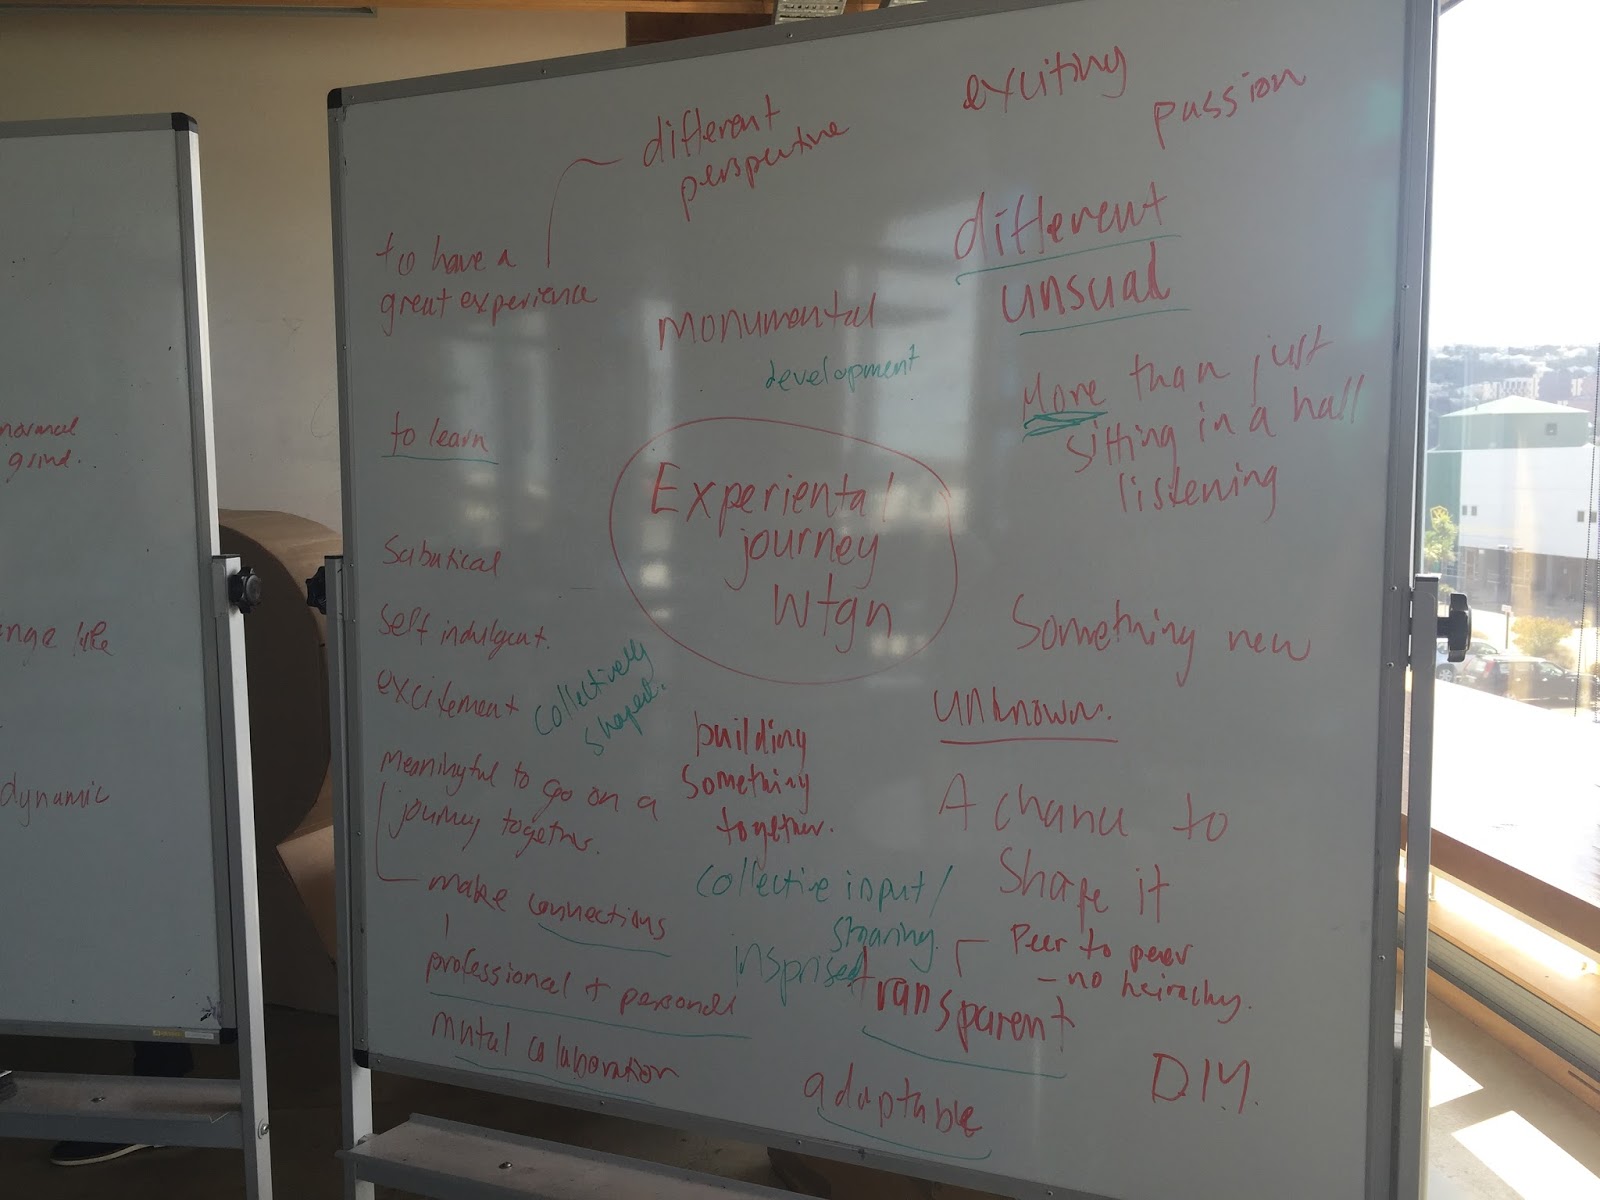 normal
grind.
dynamic
exciting
passion
different
perspective
to have a
great experience
different
unsual
monumental
development
More than just
sitting in a hall
listening
to learn
Experiental
journey
Wtgn
Sabatical
Self indulgent.
excitement
collectively
shaped.
Something new
unknown.
building
something
together.
Meaningful to go on a
journey together.
A chance to
Shape it
make connections
collective input/
sharing
Peer to peer
- no heirachy.
professional + personal
transparent
D.I.Y.
adaptable